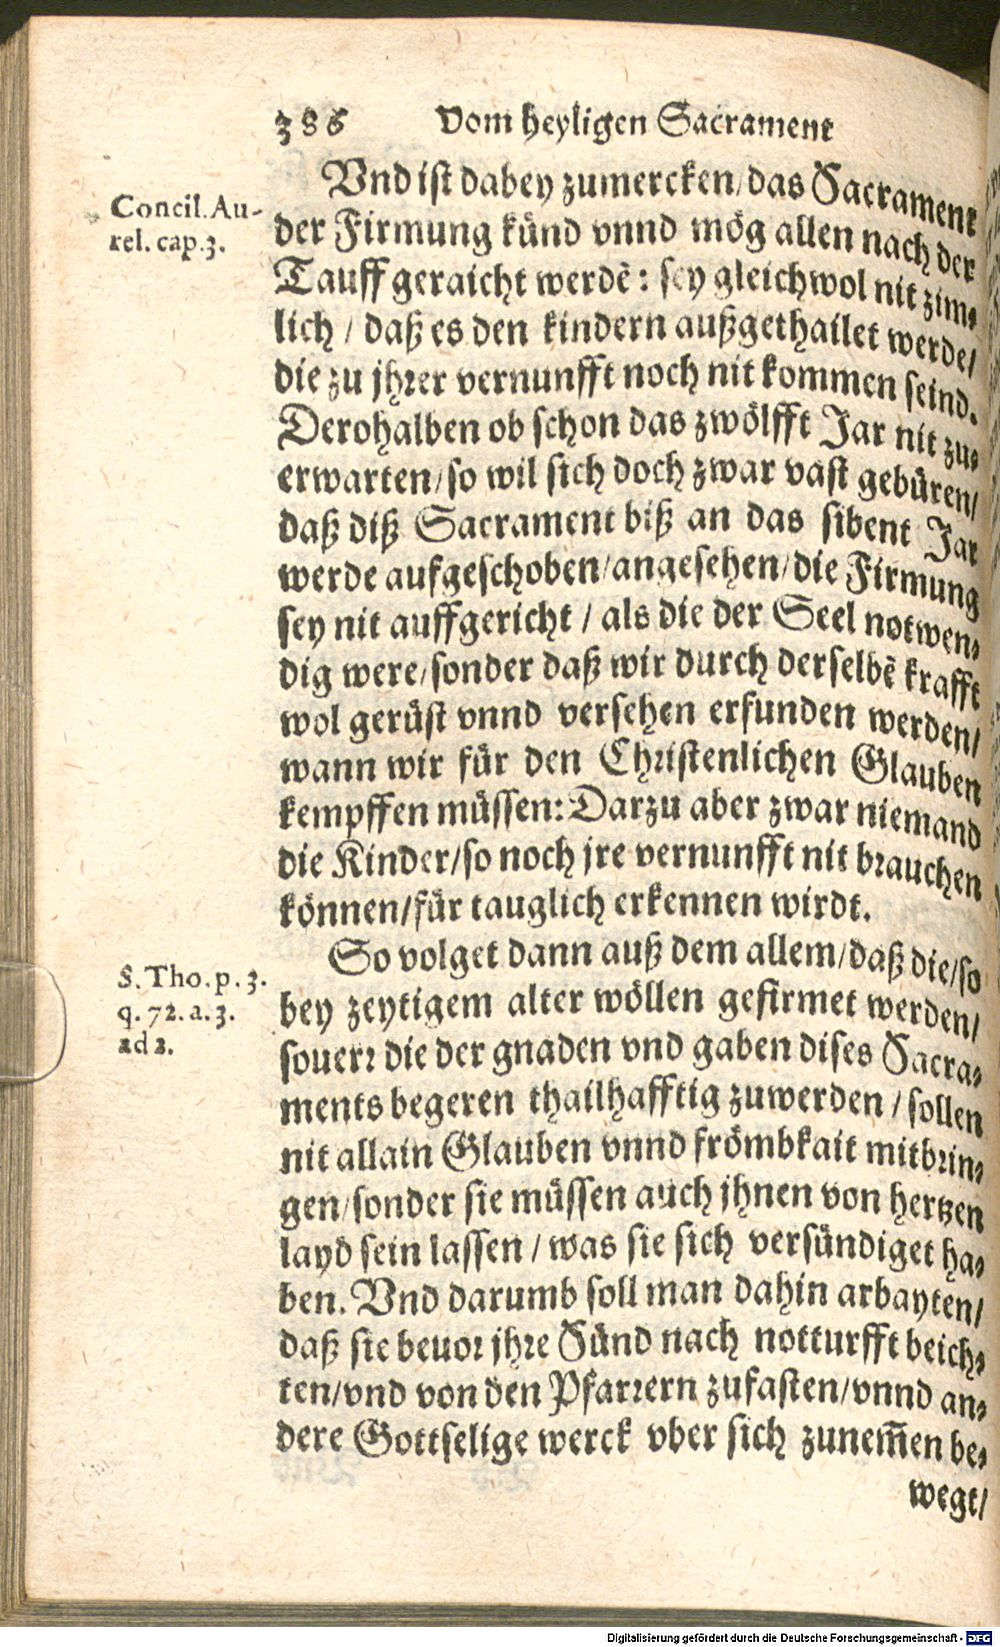 386 Vom heyligen Sacrament
Vnd ist dabey zumercken/das Sacrament
der Firmung künd vnnd mög allen nach der
Tauff geraicht werdẽ: sey gleichwol nit zim-
lich / daß es den kindern außgethailet werde/
die zu jhrer vernunfft noch nit kommen seind.
Derohalben ob schon das zwölfft Jar nit zu-
erwarten/so wil sich doch zwar vast gebüren/
daß diß Sacrament biß an das sibent Jar
werde aufgeschoben/angesehen/die Firmung
sey nit auffgericht / als die der Seel notwen-
dig were/sonder daß wir durch derselbẽ krafft
wol gerüst vnnd versehen erfunden werden/
wann wir für den Christenlichen Glauben
kempffen müssen: Darzu aber zwar niemand
die Kinder/so noch jre vernunfft nit brauchen
können/für tauglich erkennen wirdt.
Concil. Au-
rel. cap. 3.
So volget dann auß dem allem/daß die/so
bey zeytigem alter wöllen gefirmet werden/
souerr die der gnaden vnd gaben dises Sacra-
ments begeren thailhafftig zuwerden / sollen
nit allain Glauben vnnd frömbkait mitbrin-
gen/sonder sie müssen auch jhnen von hertzen
layd sein lassen / was sie sich versündiget ha-
ben. Vnd darumb soll man dahin arbayten/
daß sie beuor jhre Sünd nach notturfft beich-
ten/vnd von den Pfarrern zufasten/vnnd an-
dere Gottselige werck vber sich zunem̃en be-
wegt/
S. Tho. p. 3.
q. 72. a. 3.
ad 2.
Digitalisierung gefördert durch die Deutsche Forschungsgemeinschaft - DFG